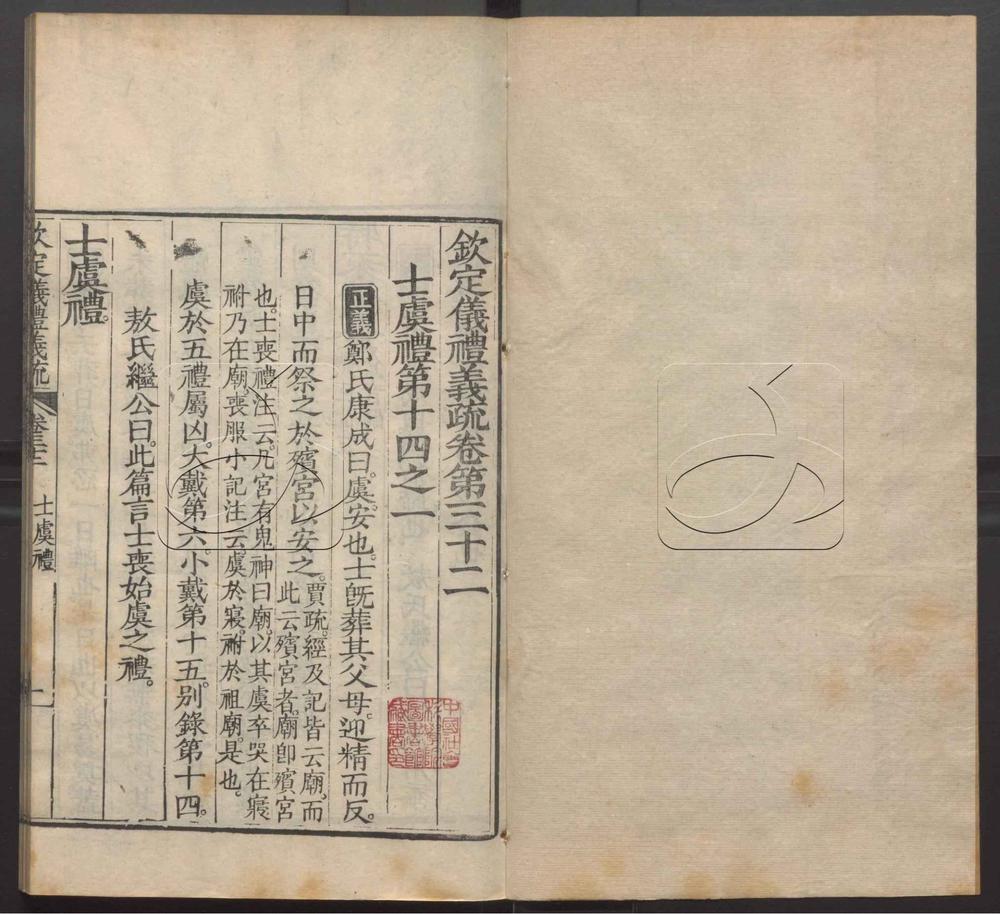 欽定儀禮義疏卷第三十二
士虞禮第十四之一
正義鄭氏康成曰。虞。安也。士旣葬其父母。迎精而反。
日中而祭之於殯宮以安之。賈疏。經及記皆云廟。而
此云殯宮者。廟卽殯宮
也。士喪禮注云。凡宮有鬼神曰廟。以其虞卒哭在寢
祔乃在廟。喪服小記注云。虞於寢。祔於祖廟。是也。
虞於五禮屬凶。大戴第六。小戴第十五。別錄第十四。
敖氏繼公曰。此篇言士喪始虞之禮。
士虞禮。
欽定儀禮義疏 卷三十二 士虞禮 一